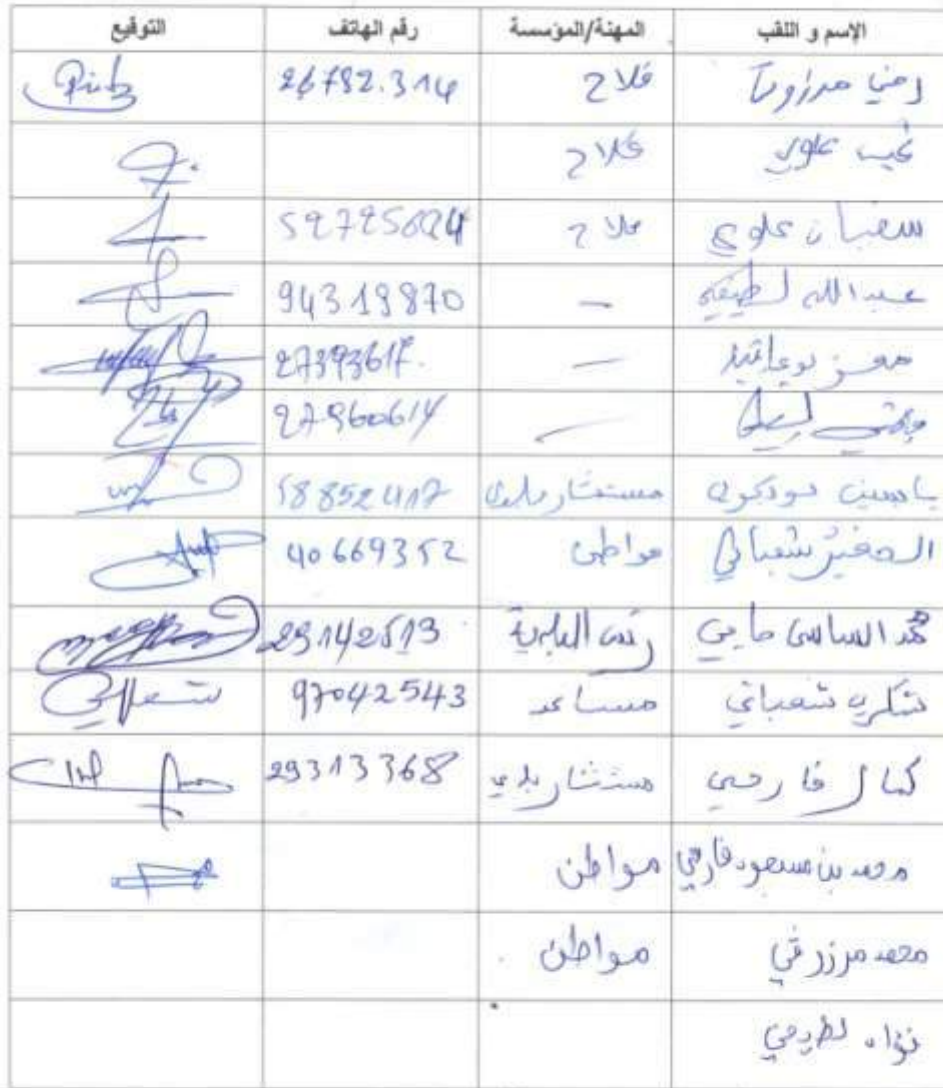 الإسم و اللقب المهنة/المؤسسة رقم الهاتف التوقيع
فلاح 26782.314
علوي فلاح
شعبان علوي فلاح 52725624
عبد الله لطيفي — 94319870
معز بوعانيد — 27393617.
— 27960614
ياسين مستشار بلدي 58852417
الصغير شعباني مواطن 40669352
محمد الساسي حاجي رئيس البلدية 29142513
شكري شعباني مساعد 97042543
كمال فارحي مستشار بلدي 29313368
محمد بن مسعود فارحي مواطن
محمد مرزوقي مواطن